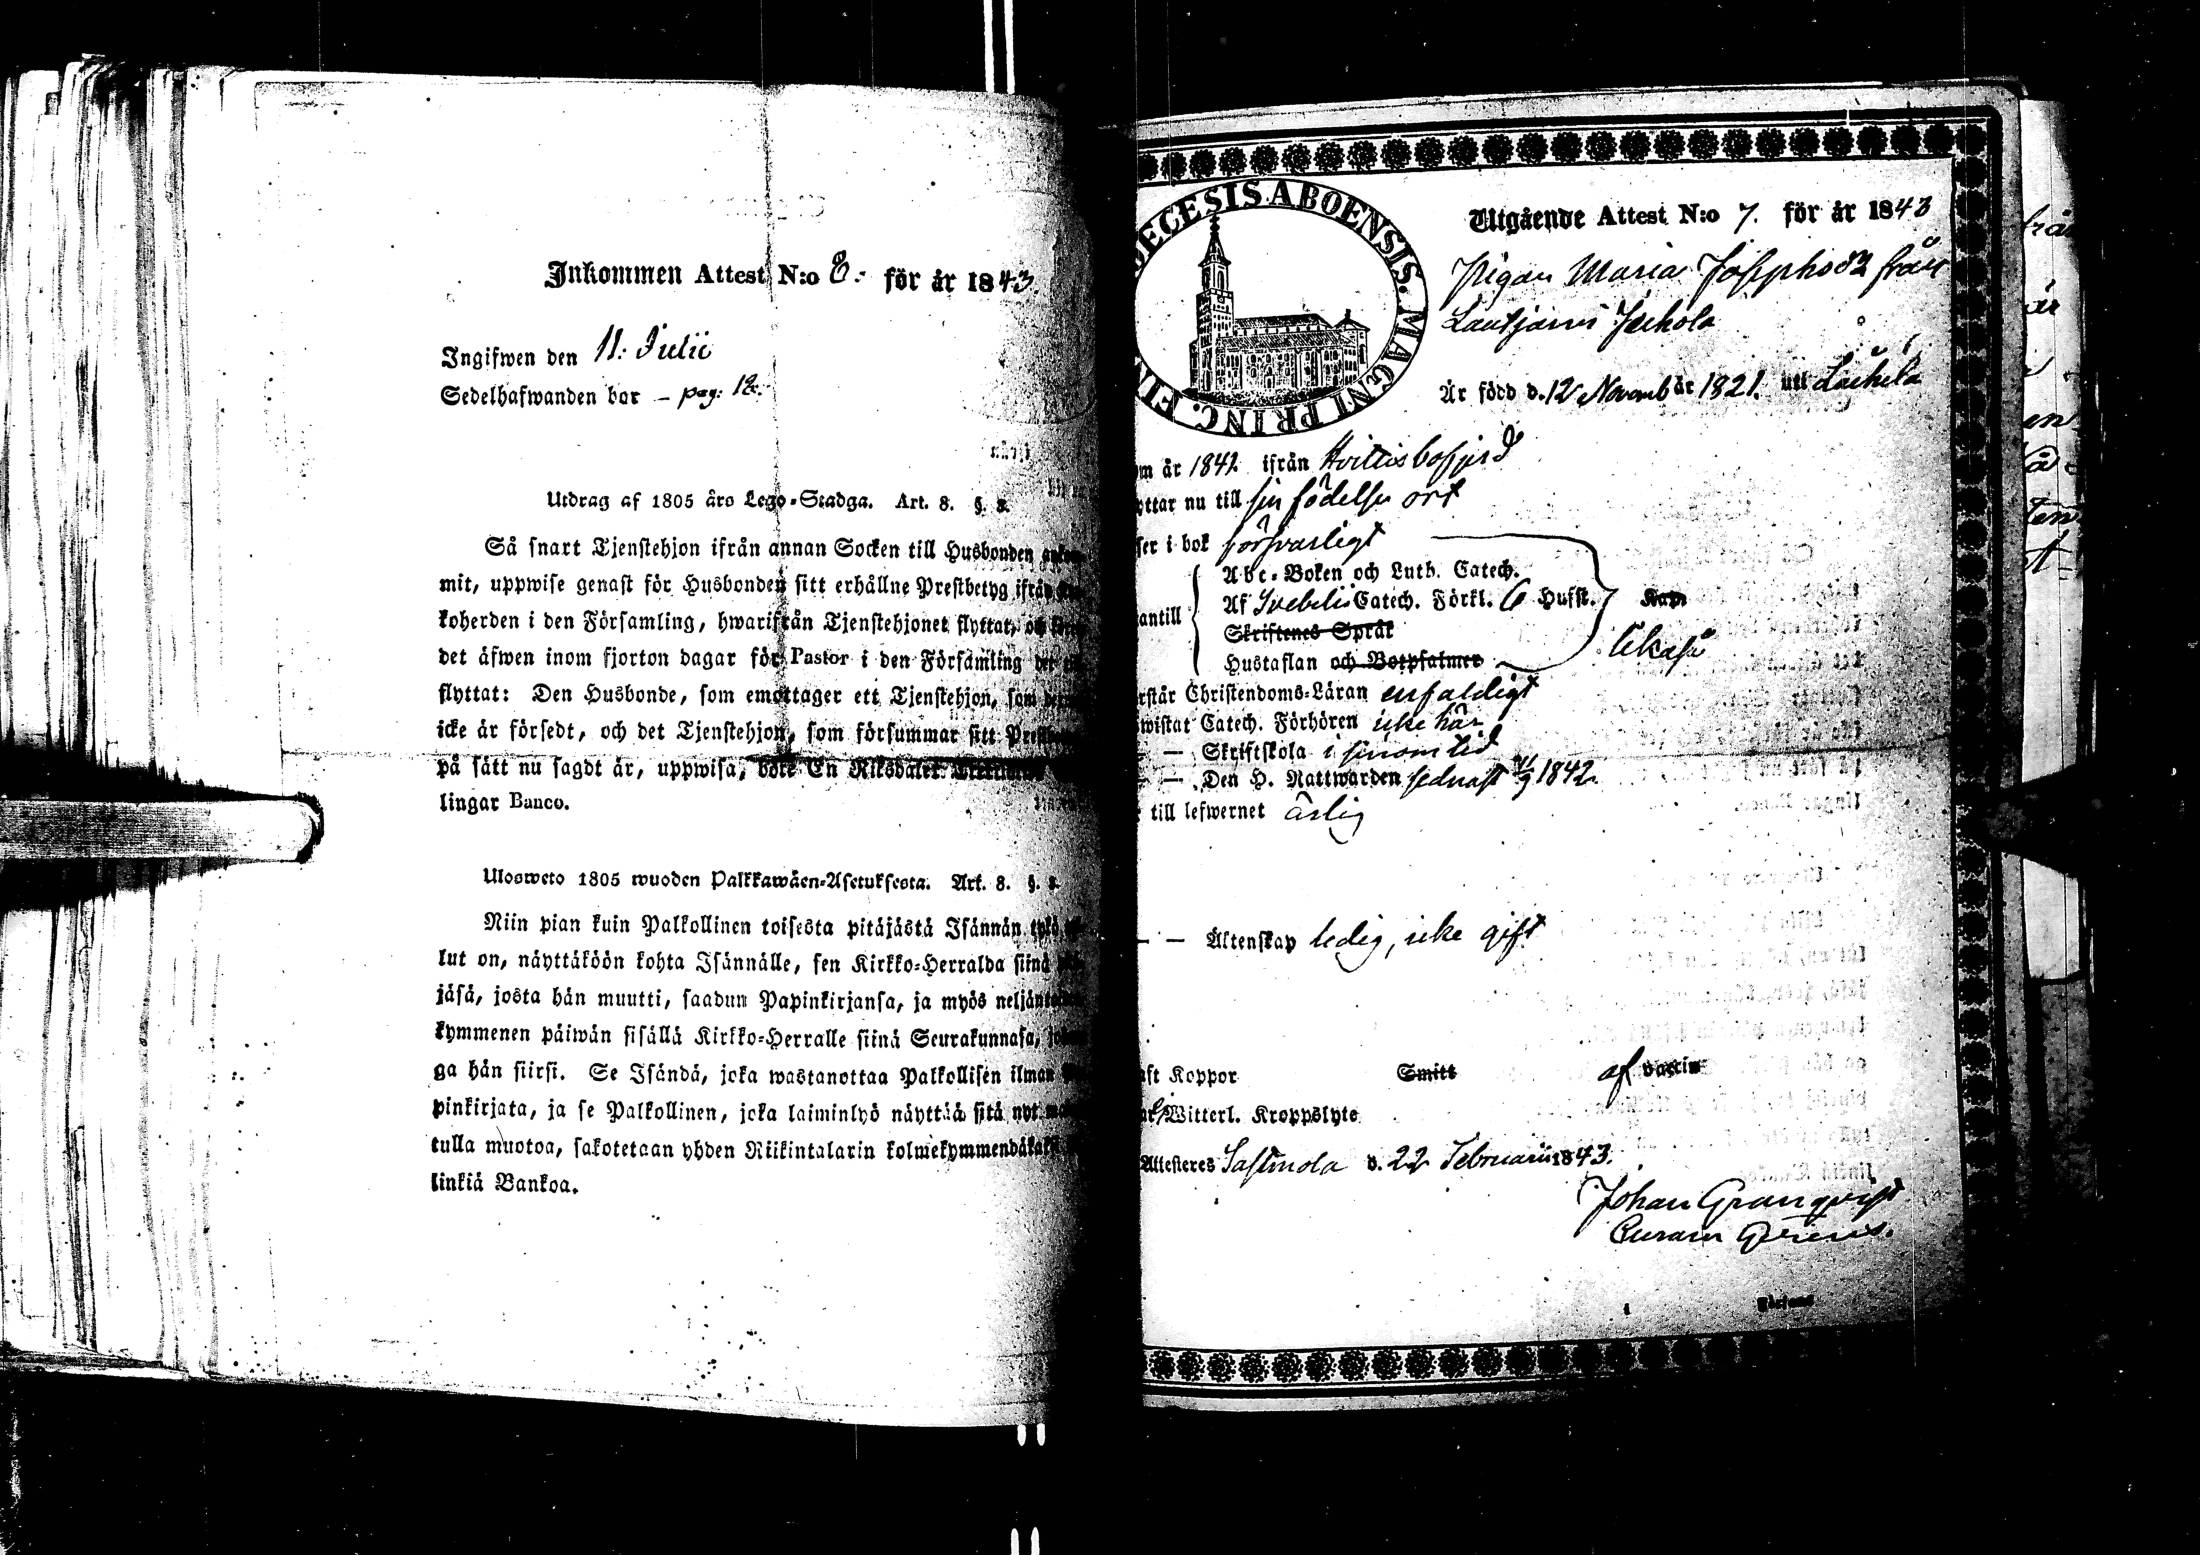 Inkommen Attest N:o 8. för år 1843.
Ingifwen den 11. Julii
Sedelhafwanden bor – pag: 12.
Utdrag af 1805 års Lego-Stadga. Art. 8. §.
Så snart Tjenstehjon ifrån annan Socken till Husbonden
mit, uppwise genast för Husbonden sitt erhållne Prestbetyg ifrån
koherden i den Församling, hwarifrån Tjenstehjonet flyttat,
det äfwen inom fjorton dagar för Pastor i den Församling
flyttat: Den Husbonde, som emottager ett Tjenstehjon, som
icke är försedt, och det Tjenstehjon, som försummar sitt
på sätt nu sagdt är, uppwisa, böte En Riksdaler
lingar Banco.
Ulosweto 1805 wuoden Palkkawäen-Asetuksesta. Art. 8. §.
Niin pian kuin Palkollinen toisesta pitäjästä Isännän tykö
lut on, näyttäköön kohta Isännälle, sen Kirkko-Herralda siinä
jäsä, josta hän muutti, saadun Papinkirjansa, ja myös
kymmenen päiwän sisällä Kirkko-Herralle siinä Seurakunnasa,
ga hän siirsi. Se Isändä, joka wastanottaa Palkollisen ilman
pinkirjata, ja se Palkollinen, joka laiminlyö näyttää sitä nyt
tulla muotoa, sakotetaan yhden Riikintalarin
linkiä Bankoa.
ABOENSIS. MAGNI PRINC.
Utgående Attest N:o 7. för år 1843
Pigan Maria Josephsdr från
Lautjärvi
Är född d. 12 Novemb år 1821. uti
år 1842 ifrån Hvittisbofjerd
nu till sin födelse ort
i bok försvarligt
Abc-Boken och Luth. Catech.
Af Svebelii Catech. Förkl. 6 Hufst.
Skriftenes Språk
Hustaflan och Botpsalmer
Christendoms-Läran enfaldigt
Catech. Förhören icke här
– – Skriftskola i sinom tid
– – Den H. Nattwarden sednast 1842
till lefwernet ärlig
– – Äktenskap ledig, icke gift
Koppor Smitt af vaccin
Witterl. Kroppslyte
Attesteres Sastmola d. 22 Februarii 1843.
Johan Granqvist